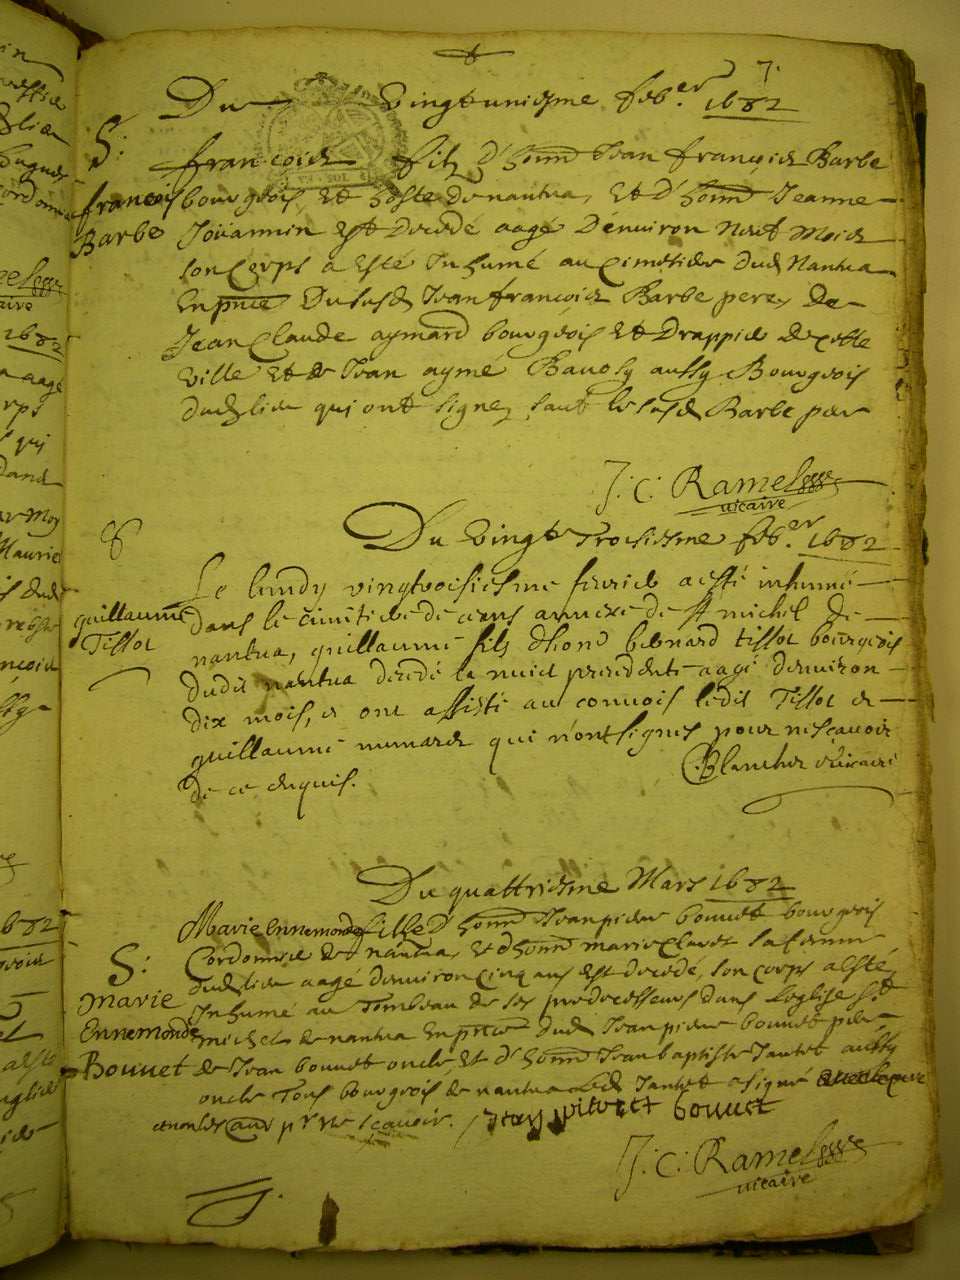 7.
Du Vingt uniesme feb.er 1682
S:
françois
Barbe
françois filz d'honn Jean françois Barbe
bourgeois, Et hoste de nantua, Et d'honn Jeanne
Joüannin Est decedé aagé D'environ Neuf Mois
son Corps a Esté Inhumé au Cimetiere dud Nantua
En pnce Du susd Jean françois Barbe pere, De
Jean Claude aymard bourgeois Et drappier de cette
Ville Et de Jean aymé Bavosy aussy Bourgeois
dud lieu qui ont signez sauf le susd Barbe pere
J: C: Ramel
vicaire
Du Vingt Troisiesme feb.er 1682
8
guillaume
Tissot
Le lundy vingtroisiesme fevrier a esté inhumé
dans le cimitiere de ceans annexe de st michel de
nantua, guillaume fils dhono bernard tissot bourgeois
dudit nantua decedé la nuict precedente aagé denviron
dix mois, et ont assisté au convois ledit Tissot et
guillaume munard qui n'ont signés pour ne sçavoir
de ce enquis.
C. Blanchet vicaire
Du quattriesme Mars 1682
S:
Marie
Ennemonde
Bouuet
Marie Ennemonde fille d'honn Jean pierre bouuet bourgeois
Cordonnier de nantua, Et d'honn marie Claret sa femme
dud lieu aagé denviron Cinq ans Est decedé, son corps a Esté
Inhumé au Tombeau de ses predecesseurs dans L'eglise st
michel de nantua En pnce dud Jean pierre bouuet pere
de Jean bouuet oncle, Et d'honn Jean baptiste Jantet aussy
oncle Tous bourgeois de nantua Led Jantet a signé avec le pere
et non les autres pr ne sçavoir. Jean bouuet
J: C: Ramel
vicaire
1682
1682